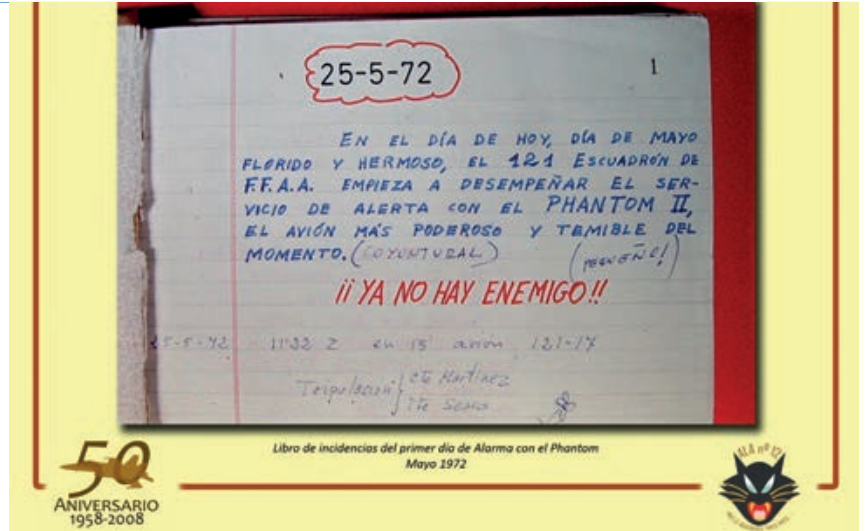 25-5-72
1
EN EL DÍA DE HOY, DÍA DE MAYO
FLORIDO Y HERMOSO, EL 121 ESCUADRÓN DE
F.F.A.A. EMPIEZA A DESEMPEÑAR EL SER-
VICIO DE ALERTA CON EL PHANTOM II,
EL AVIÓN MÁS PODEROSO Y TEMIBLE DEL
MOMENTO. (COYUNTURAL) (PEQUEÑO!)
¡¡ YA NO HAY ENEMIGO !!
25-5-72 11'32 Z en 15 avión 121-17
Tripulación } Cte Martínez
Tte
Libro de incidencias del primer día de Alarma con el Phantom
Mayo 1972
50
ANIVERSARIO
1958-2008
ALA nº 12